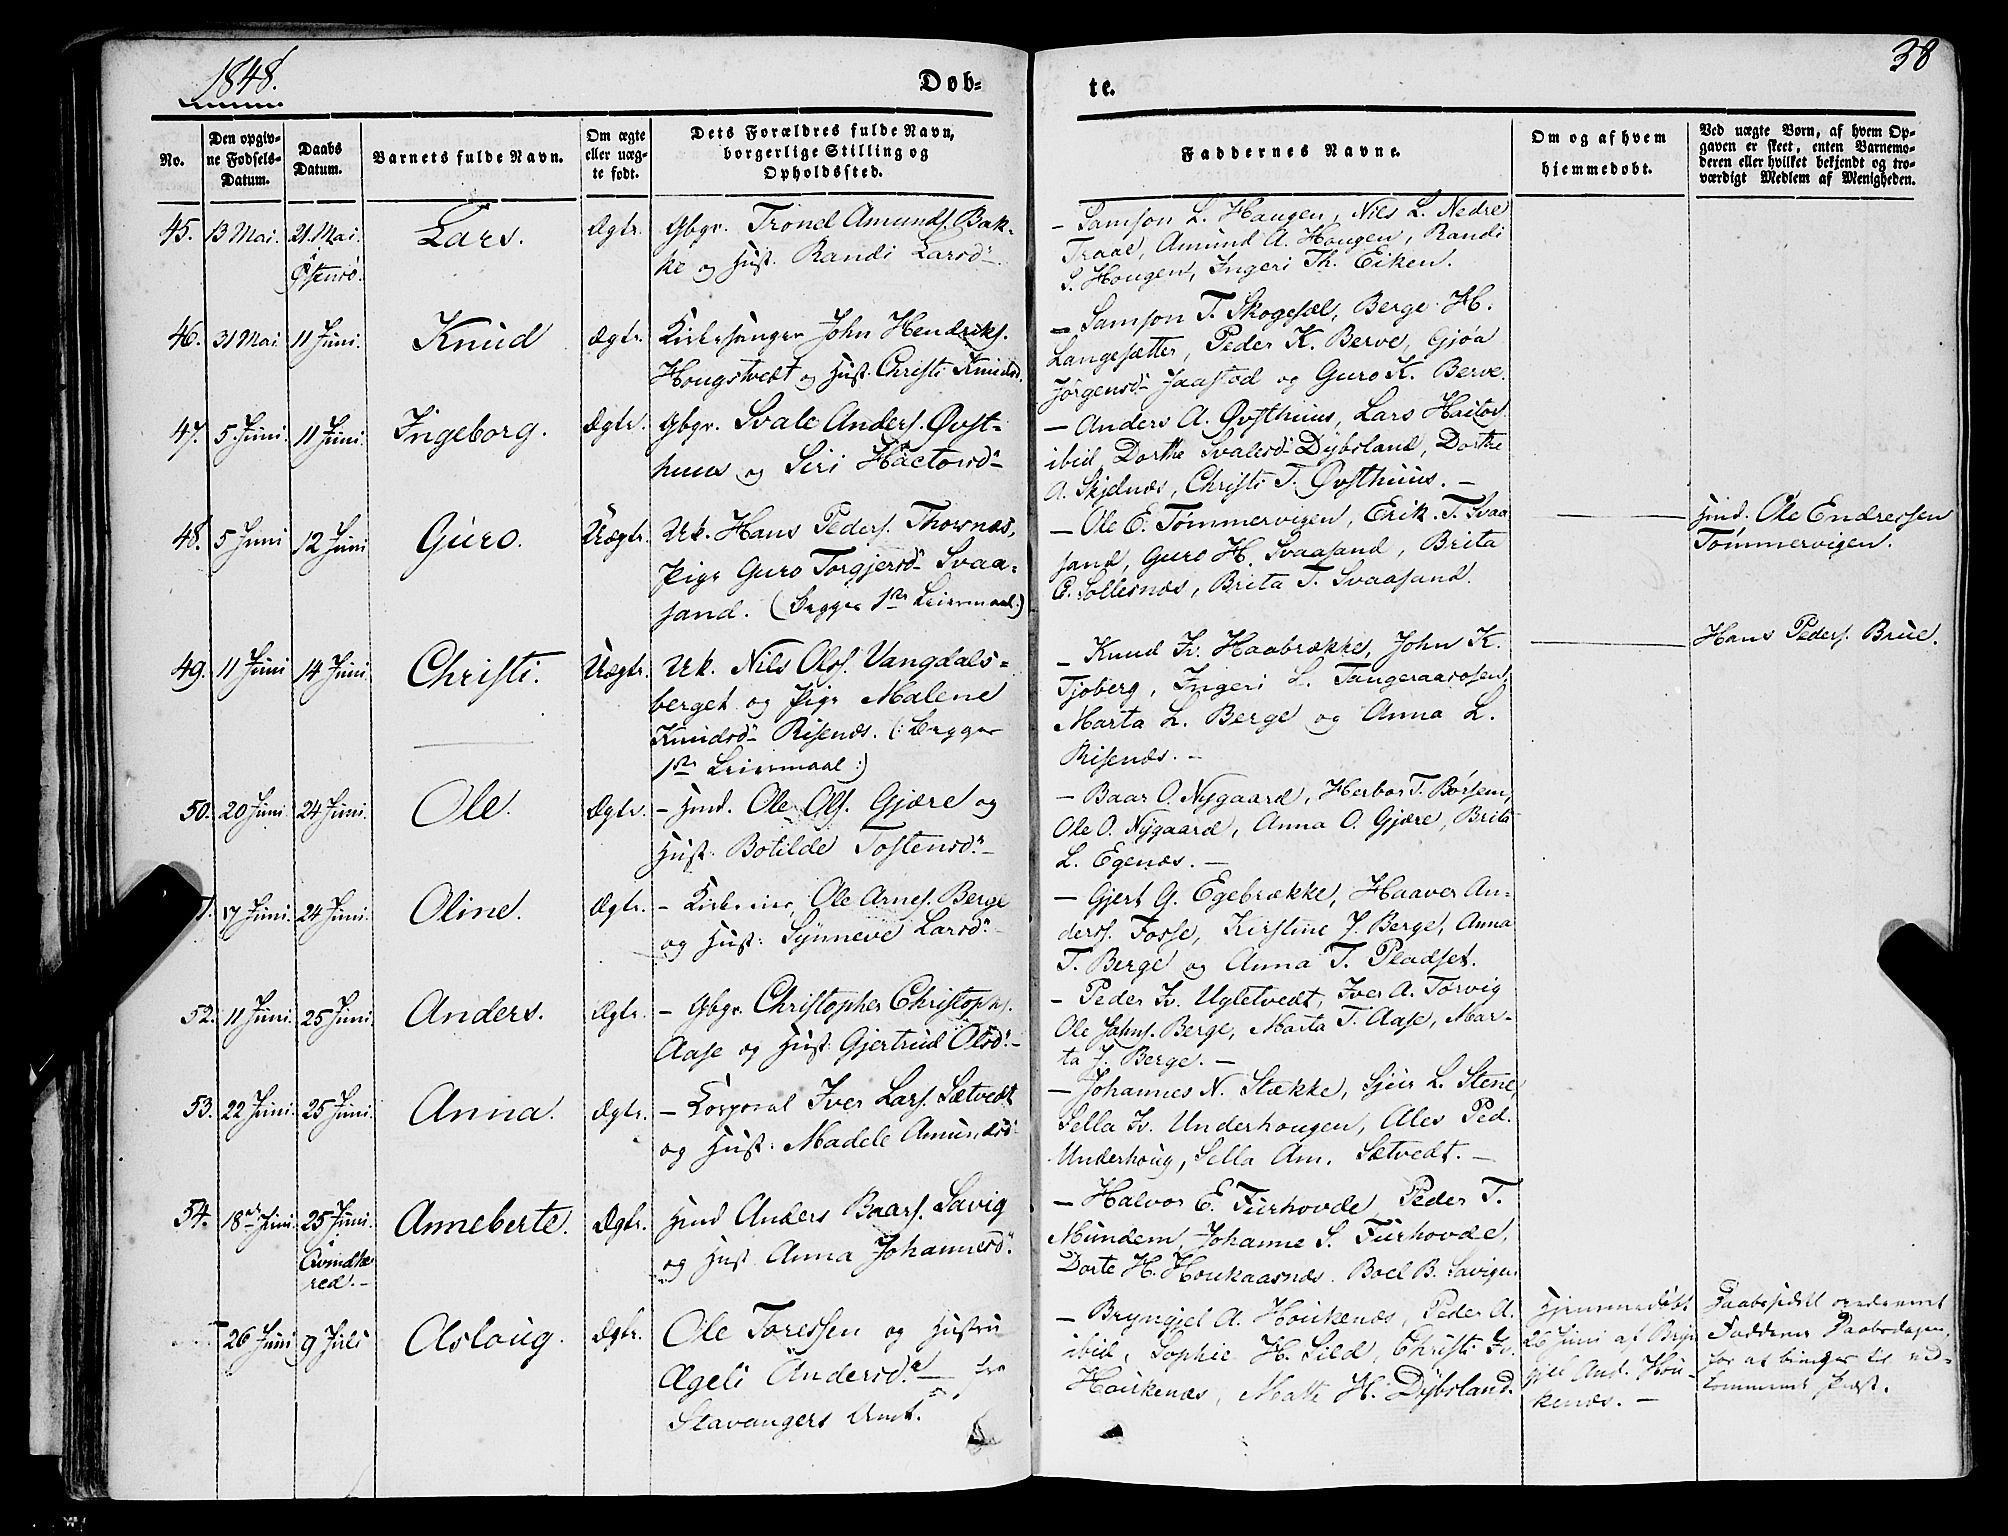 1848.
Døb-
te.
38
No.
Den opgiv-
ne Fødsels-
Datum.
Daabs
Datum.
Barnets fulde Navn.
Om ægte
eller uæg-
te født.
Dets Forældres fulde Navn,
borgerlige Stilling og
Opholdssted.
Faddernes Navne.
Om og af hvem
hjemmedøbt.
Ved uægte Børn, af hvem Op-
gaven er skeet, enten Barnemo-
deren eller hvilket bekjendt og tro-
værdigt Medlem af Menigheden.
45. 13 Mai. 21. Mai Lars. Ægte. Gbgr. Trond Amunds. Bak-
Østensø. ke og Hust. Randi Larsd.
- Samson L. Haugen, Nils L. Nedre
Traae, Amund A. Hougen, Randi
S. Hougen, Ingeri Th. Eiken.
46. 31 Mai 11 Juni. Knud Ægte. Kirkesanger John Hendriks.
Hougstvedt og Hust. Christi Knudsd.
- Samson T. Skogesæl, Berge H.
Langesætter, Peder K. Berve, Gjøa
Jørgensd. Jaastad og Guro K. Berve.
47. 5 Juni. 11 Juni. Ingeborg. Ægte. Gbgr. Svale Anders. Øvst-
huus og Siri Hactorsd.
- Anders A. Øvsthuus, Lars Haitor
ibid Dorthe Svalesd. Dybsland, Dorthe
A. Skjelnæs, Christi T. Øvsthuus. -
48. 5 Juni 12 Juni Guro. Uægte. Uk. Hans Peders. Thornæs,
Pige Guro Torgjersd. Svaa-
sand. (Begges 1ste Leiermaal.)
- Ole E. Tømmervigen, Erik T. Svaa
sand, Guro H. Svaasand, Brita
E. Sollesnæs, Brita T. Svaasand.
Hmd. Ole Endressen
Tømmervigen.
49. 11 Juni 14 Juni. Christi. Uægte. Uk. Nils Ols. Vangdals-
berget og Pige Malene
Knudsd. Risenæs. (: Begges
1ste Leiermaal :)
- Knud Iv. Haabrække, John K.
Tjoberg, Ingeri L. Tangeraasosen,
Marta L. Berge og Anna L.
Risenæs. -
Hans Peders. Brue.
50. 20 Juni 24 Juni. Ole. Ægte. - Hmd. Ole Ols. Gjære og
Hust: Botilde Tostensd. -
- Baar O. Nygaard, Herbor T. Børsem,
Ole O. Nygaard, Anna O. Gjære, Brita
L. Egenæs. -
17 Juni. 24 Juni. Oline. Ægte. - Ole Arnes. Berge
og Hust: Synneve Larsd.
- Gjert G. Egebrække, Haaver An-
derss. Fosse, Kirstine J. Berge, Anna
T. Berge og Anna T. Pladset.
52. 11 Juni. 25 Juni. Anders. Ægte. - Gbgr. Christopher Christophs.
Aase og Hust: Gjertrud Olsd. -
- Peder Iv. Ugletvedt, Iver A. Torvig
Ole Johns. Berge, Marta T. Aase, Mar-
ta J. Berge. -
53. 22 Juni. 25 Juni. Anna. Ægte. - Korporal Iver Lars. Sætvedt
og Hust: Madele Amundsd.
- Johannes N. Stække, Sjur L. Stene,
Sella Iv. Underhougen, Ales Ped.
Underhoug, Sella Am. Sætvedt. -
54. 18de Juni. 25 Juni. Anneberte. Ægte. Hmd Anders Baars. Savig
Qvindhæ og Hust Anna Johannesd.
red. -
- Halvor E. Furhovde, Peder T.
Mundem, Johanne S. Furhovde,
Dorte H. Houkaasnæs. Boel B. Savigen
26 Juni 9 Juli Asloug. Ægte. Ole Toressen og Hustru
Ægeli Andersd. fra
Stavangers Amt.
- Bryngjel A. Houkenæs, Peder A.
ibid, Sophie H. Sild, Christi Iv.
Houkenæs, Matte H. Dybsland.
Hjemmedøbt
26 Juni af Bryn
gjel And. Hou-
kenæs. -
Daabsseddel
Fadderne Daabsdagen,
for at bringes til ved-
kommende Præst.